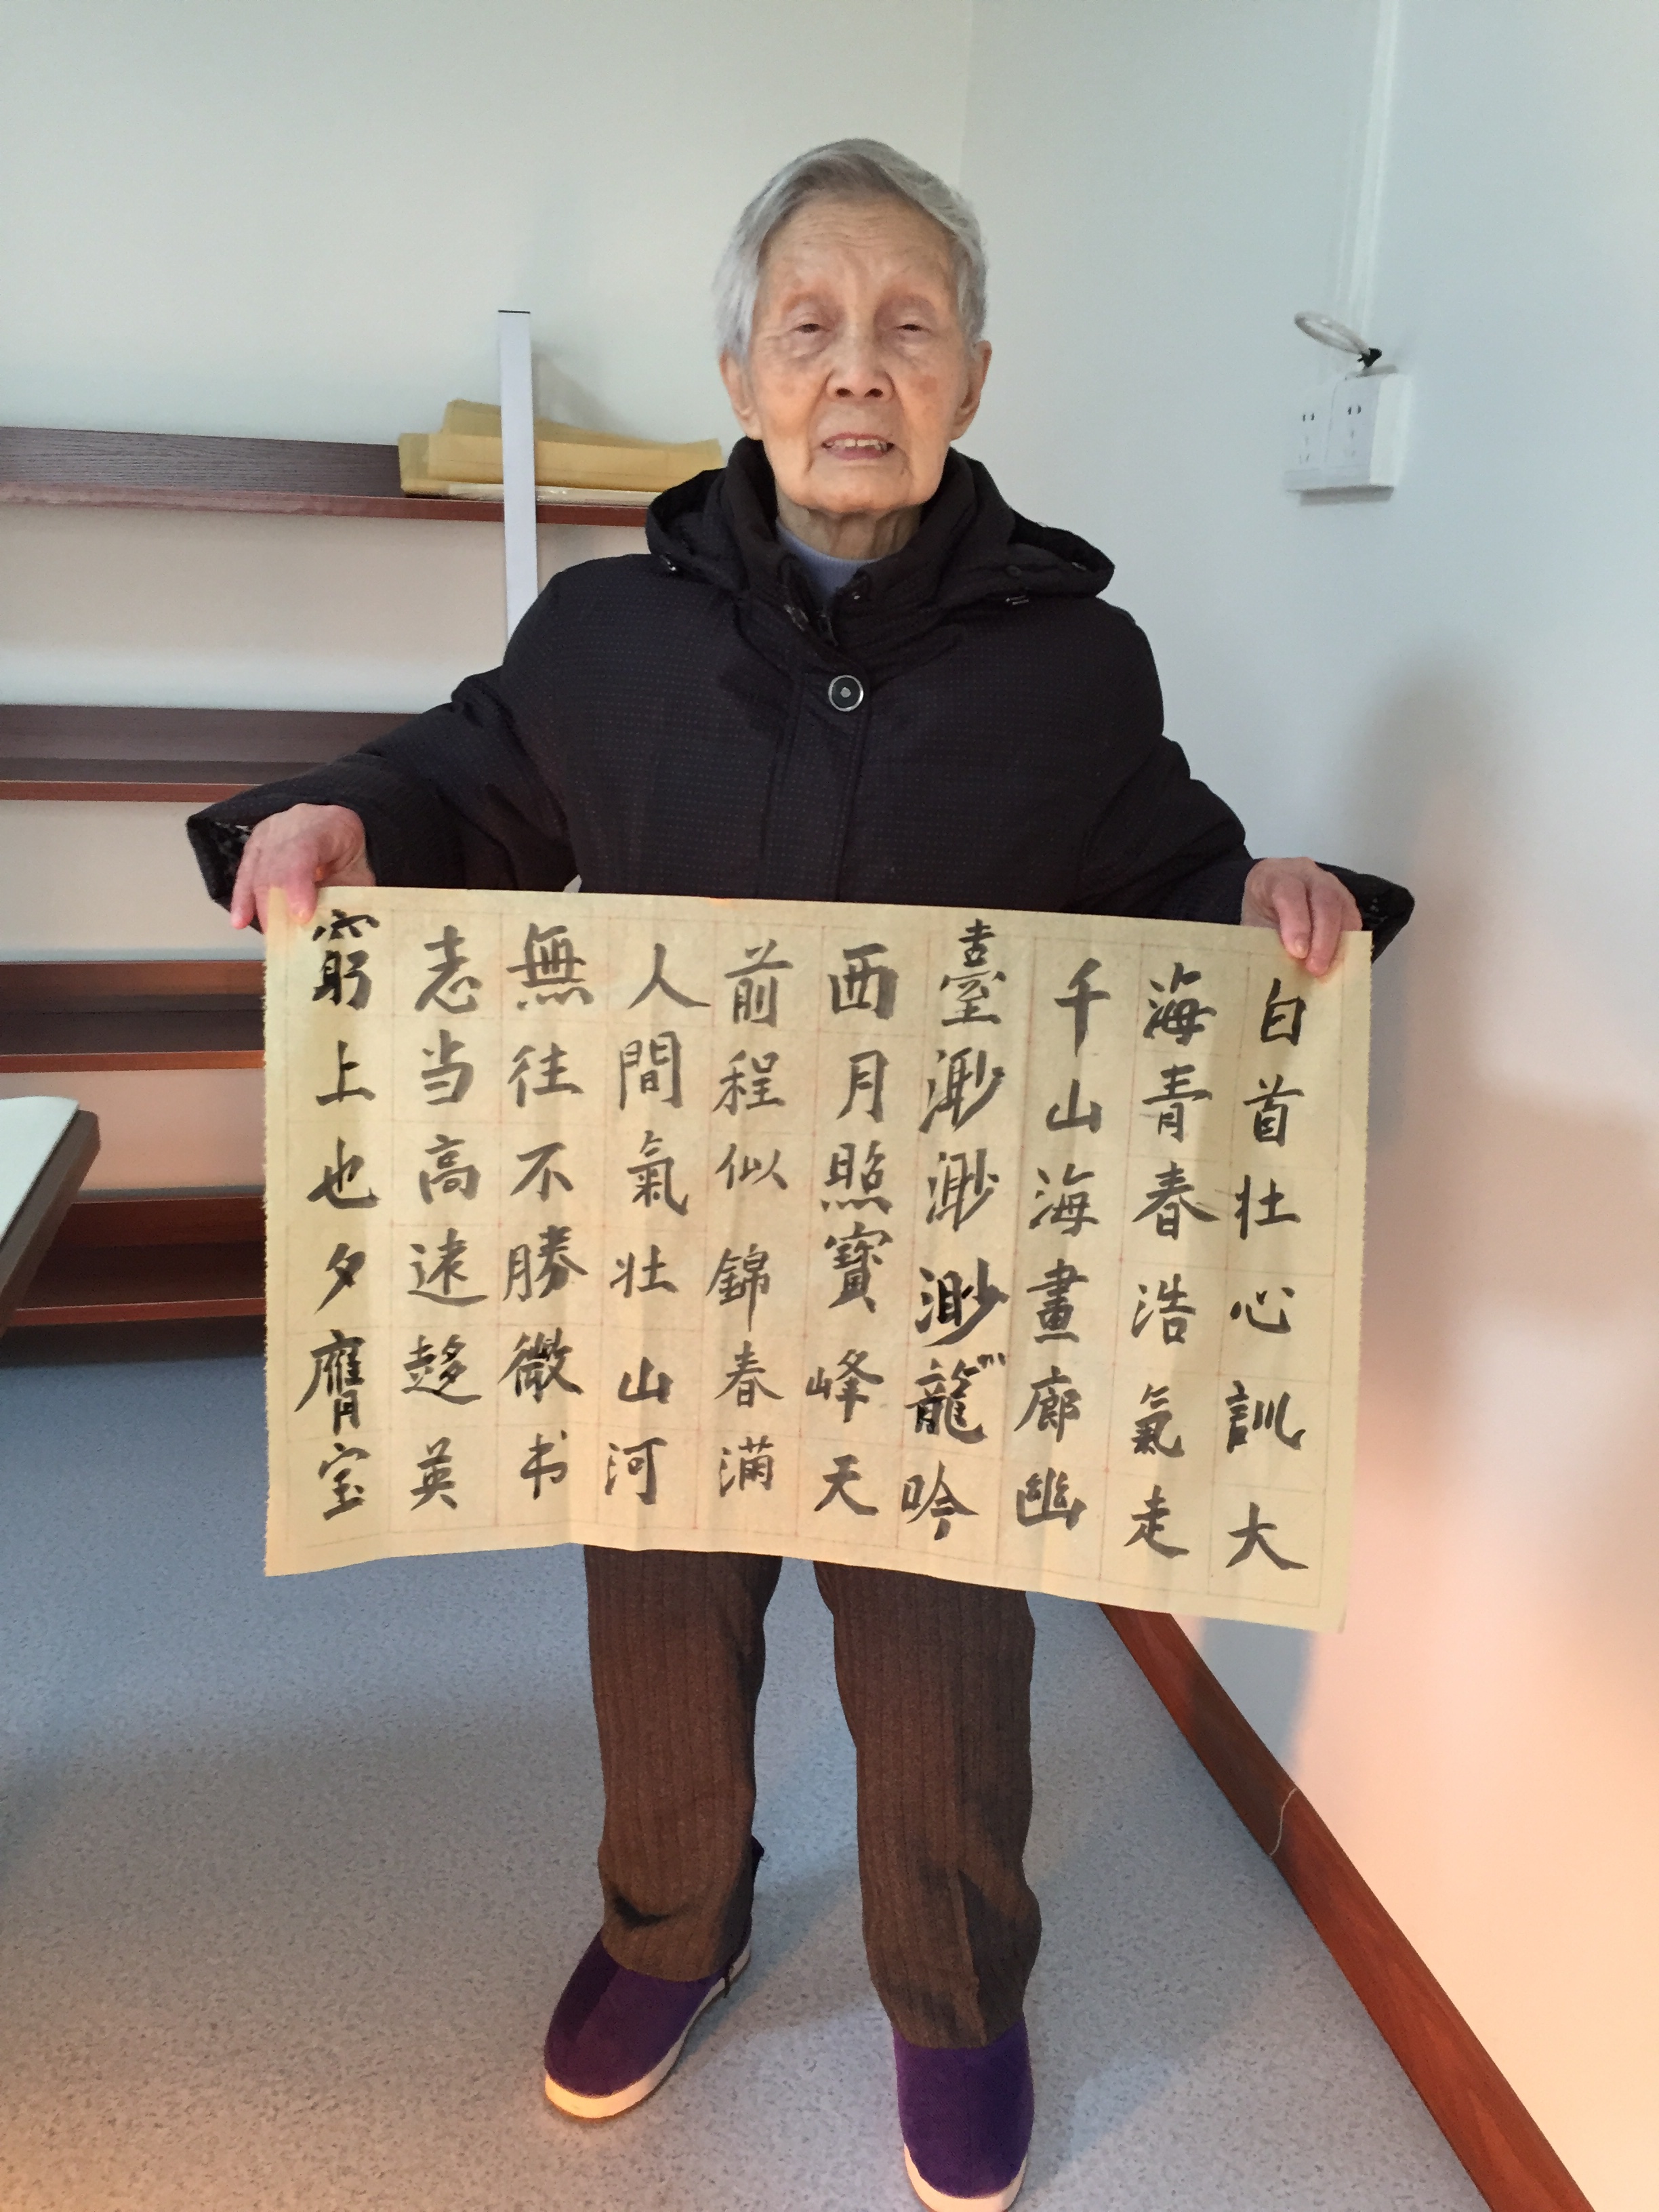 白首壮心訓大
海青春浩氣走
千山海畫廊幽
臺渺渺渺龍吟
西月照寶峰天
前程似錦春滿
人間氣壯山河
無往不勝微书
志当高远趍英
窮上也夕膺宝